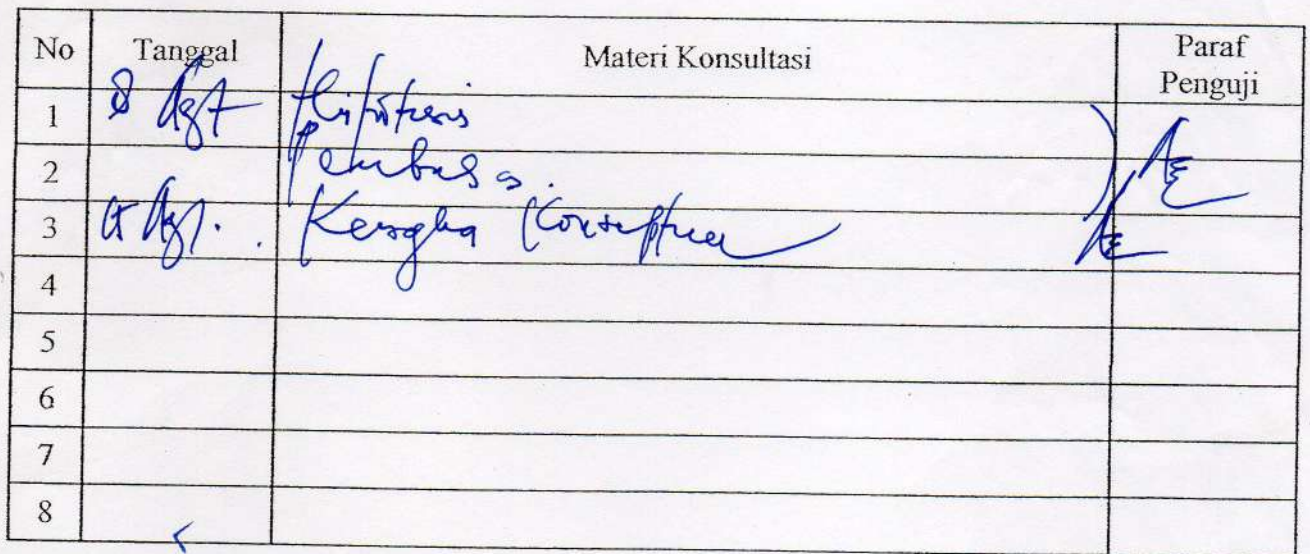 No Tanggal Materi Konsultasi Paraf Penguji
1 8 Agt Hipotesis
2 Pembahas
3 Agt. Kerangka Konseptual
4
5
6
7
8